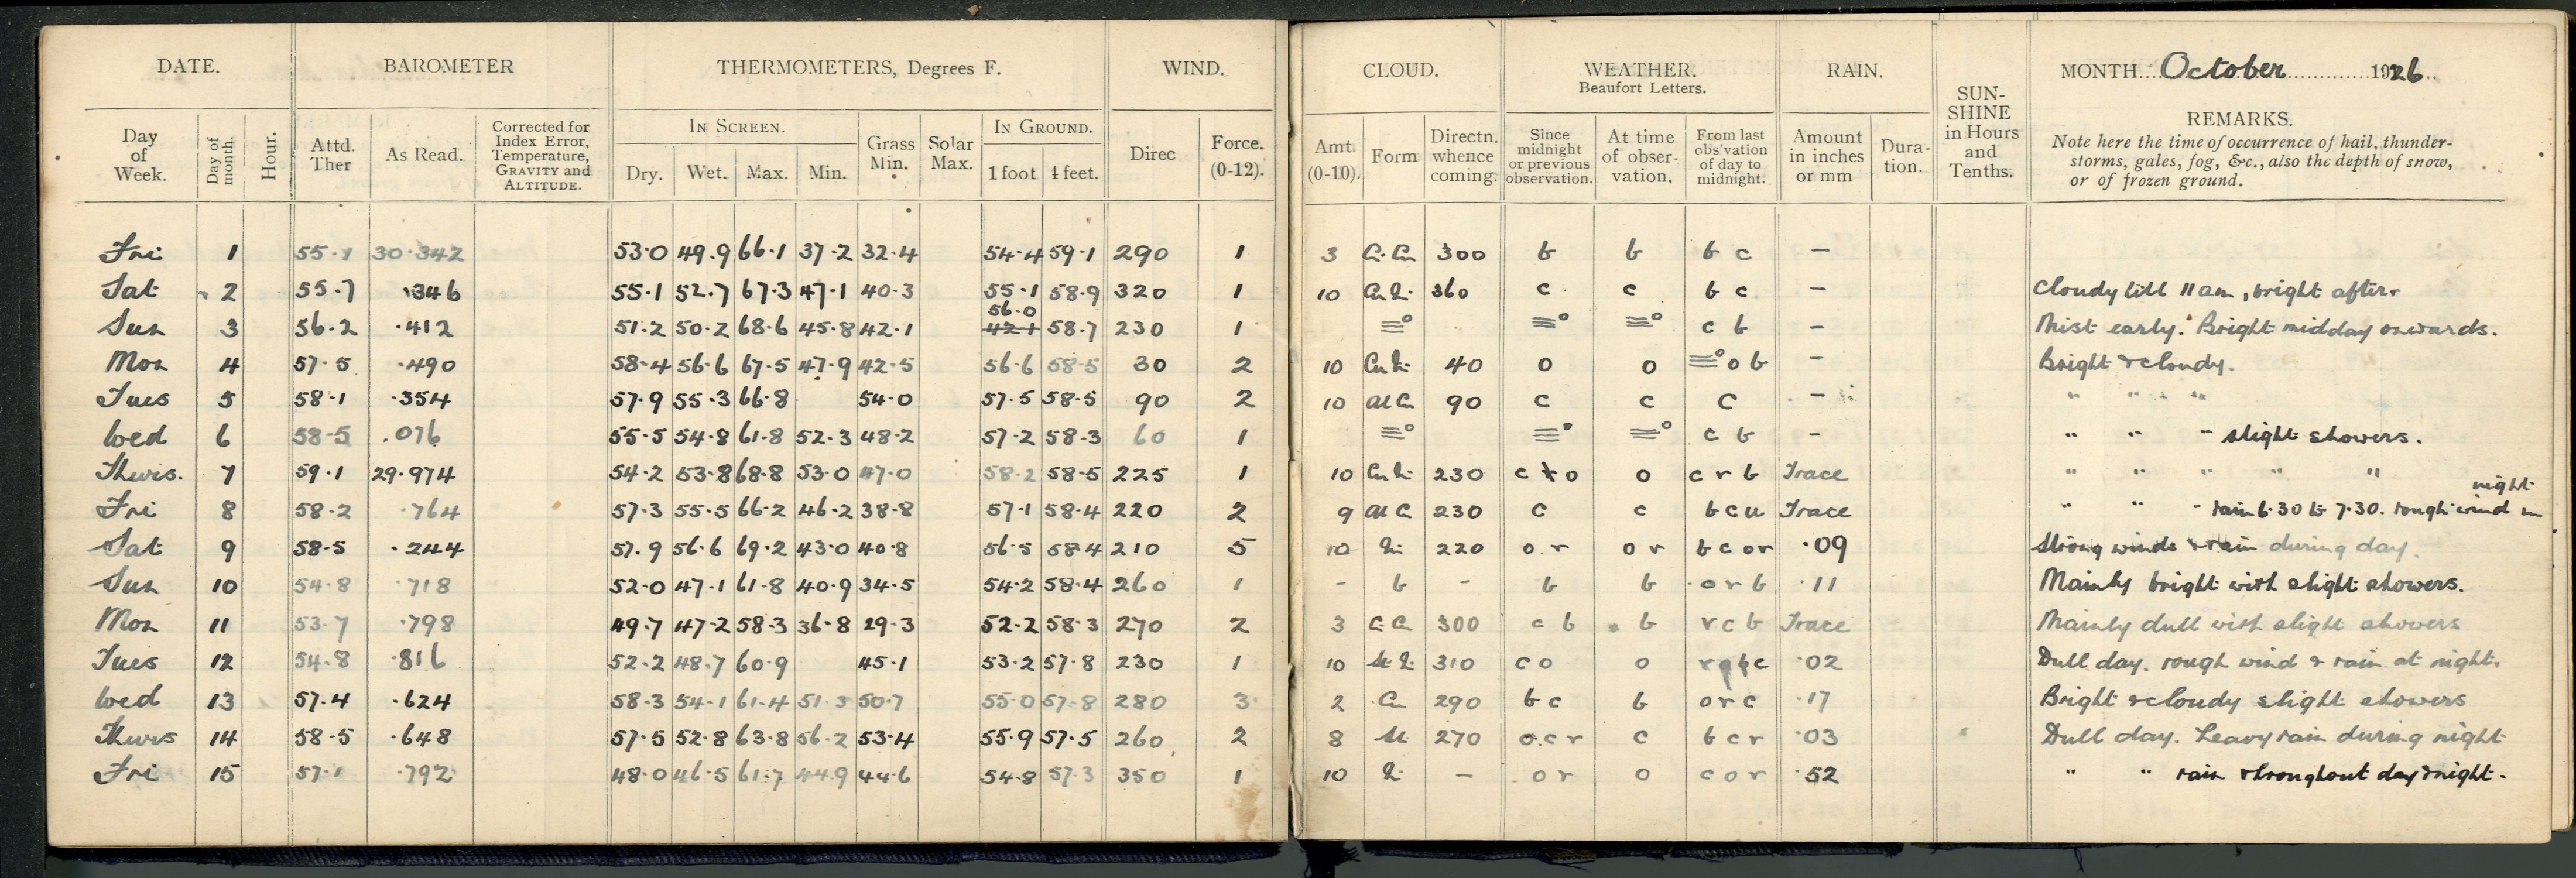 DATE. BAROMETER THERMOMETERS, Degrees F. WIND. CLOUD. WEATHER. Beaufort Letters. RAIN. SUN-SHINE in Hours and Tenths. MONTH October 1926
REMARKS.
Note here the time of occurrence of hail, thunder-
storms, gales, fog, &c., also the depth of snow,
or of frozen ground.
IN SCREEN. IN GROUND.
Day of Week. Day of month. Hour. Attd. Ther As Read. Corrected for Index Error, Temperature, GRAVITY and ALTITUDE. Dry. Wet. Max. Min. Grass Min. Solar Max. 1 foot 4 feet. Direc Force. (0-12). Amt. (0-10). Form Directn. whence coming. Since midnight or previous observation. At time of obser-vation. From last obs'vation of day to midnight. Amount in inches or mm Dura-tion.
Fri 1 55.1 30.342 53.0 49.9 66.1 37.2 32.4 54.4 59.1 290 1 3 300 b b b c —
Sat 2 55.7 .346 55.1 52.7 67.3 47.1 40.3 55.1 58.9 320 1 10 360 c c b c — Cloudy till 11 am, bright after.
Sun 3 56.2 .412 51.2 50.2 68.6 45.8 42.1 56.0 42.1 58.7 230 1 ≡° ≡° ≡° c b — Mist early. Bright midday onwards.
Mon 4 57.5 .490 58.4 56.6 67.5 47.9 42.5 56.6 58.5 30 2 10 40 o o ≡° o b — Bright & cloudy.
Tues 5 58.1 .354 57.9 55.3 66.8 54.0 57.5 58.5 90 2 10 90 c c c — " " "
Wed 6 58.5 .076 55.5 54.8 61.8 52.3 48.2 57.2 58.3 60 1 ≡° ≡° ≡° c b — " " " slight showers.
Thurs. 7 59.1 29.974 54.2 53.8 68.8 53.0 47.0 58.2 58.5 225 1 10 230 c o o c r b Trace " " " " "
Fri 8 58.2 .764 57.3 55.5 66.2 46.2 38.8 57.1 58.4 220 2 9 230 c c b c u Trace " " " rain 6.30 to 7.30. rough wind in night
Sat 9 58.5 .244 57.9 56.6 69.2 43.0 40.8 56.5 58.4 210 5 10 220 o. r o r b c o r .09 Strong winds & rain during day.
Sun 10 54.8 .718 52.0 47.1 61.8 40.9 34.5 54.2 58.4 260 1 - b - b b o r b .11 Mainly bright with slight showers.
Mon 11 53.7 .798 49.7 47.2 58.3 36.8 29.3 52.2 58.3 270 2 3 300 c b b r c b Trace Mainly dull with slight showers
Tues 12 54.8 .816 52.2 48.7 60.9 45.1 53.2 57.8 230 1 10 310 c o o .02 Dull day. rough wind & rain at night.
Wed 13 57.4 .624 58.3 54.1 61.4 51.3 50.7 55.0 57.8 280 3 2 Cu 290 b c b o r c .17 Bright & cloudy slight showers
Thurs 14 58.5 .648 57.5 52.8 63.8 56.2 53.4 55.9 57.5 260 2 8 St 270 o.c r c b c r .03 Dull day. Heavy rain during night
Fri 15 57.1 .792 48.0 46.5 61.7 44.9 44.6 54.8 57.3 350 1 10 — o r o c o r .52 " " rain throughout day & night.